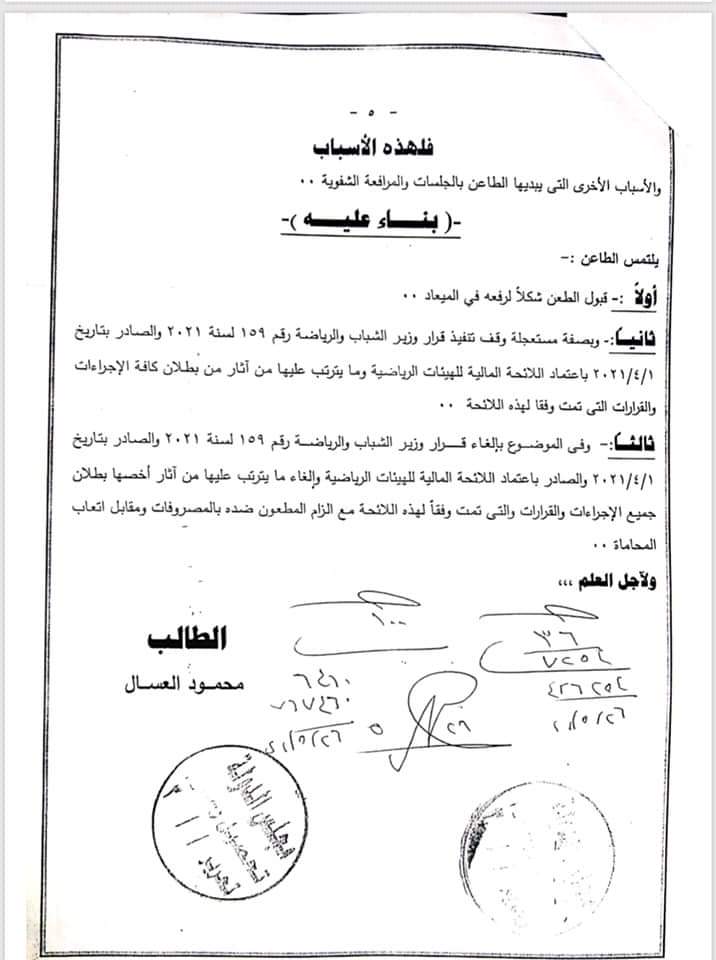 - ٥ -
فلهذه الأسباب
والأسباب الأخرى التى يبديها الطاعن بالجلسات والمرافعة الشفوية ٠٠
-( بنـــاء عليـــه )-
يلتمس الطاعن :-
أولاً :- قبول الطعن شكلاً لرفعه في الميعاد ٠٠
ثانيـاً:- وبصفة مستعجلة وقف تنفيذ قرار وزير الشباب والرياضة رقم ١٥٩ لسنة ٢٠٢١ والصادر بتاريخ
٢٠٢١/٤/١ باعتماد اللائحة المالية للهيئات الرياضية وما يترتب عليها من آثار من بطلان كافة الإجراءات
والقرارات التى تمت وفقا لهذه اللائحة ٠٠
ثالثـاً:- وفى الموضوع بإلغاء قـرار وزير الشباب والرياضـة رقم ١٥٩ لسنة ٢٠٢١ والصادر بتاريخ
٢٠٢١/٤/١ والصادر باعتماد اللائحة المالية للهيئات الرياضية وإلغاء ما يترتب عليها من آثار أخصها بطلان
جميع الإجراءات والقرارات والتى تمت وفقاً لهذه اللائحة مع الزام المطعون ضده بالمصروفات ومقابل اتعاب
المحاماة ٠٠
ولآجل العلم ،،،
١٠٠
٣٦
٧٢٥٢
الطالب
محمـود العسـال
٦٤٦٠
٧٦٧٤٦٠
٤٢٦٢٥٢
٢١/٥/٢٦
٢٦
٥
٢١/٥/٢٦
مجلس الدولة